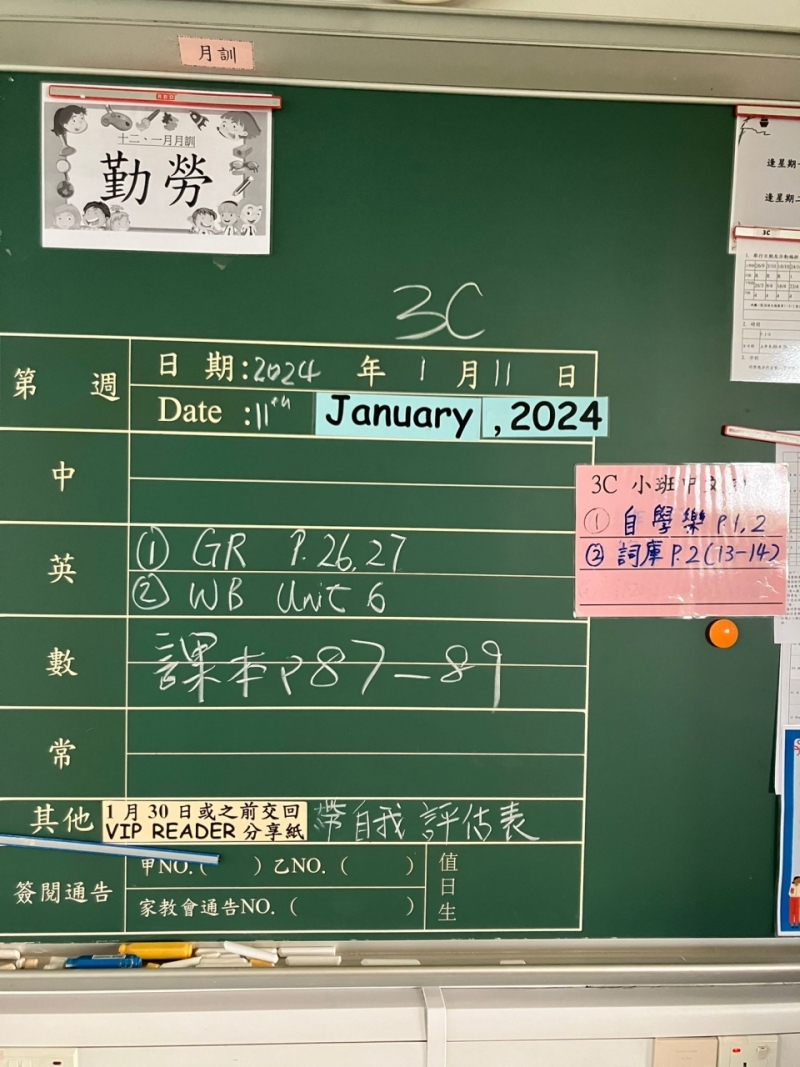 月訓
十二、一月月訓
勤勞
逢星期
逢星期二
3C
3C
第 週
日 期:2024 年 1 月 11 日
Date :11th January , 2024
中
英
① GR P.26,27
② WB Unit 6
數
課本P87-89
常
其他
1月30日或之前交回
VIP READER 分享紙
帶自我評估表
簽閱通告
甲NO.( ) 乙NO. ( )
家教會通告NO. ( )
值日生
3C 小班中文
① 自學樂 P.1,2
② 詞庫 P.2(13-14)